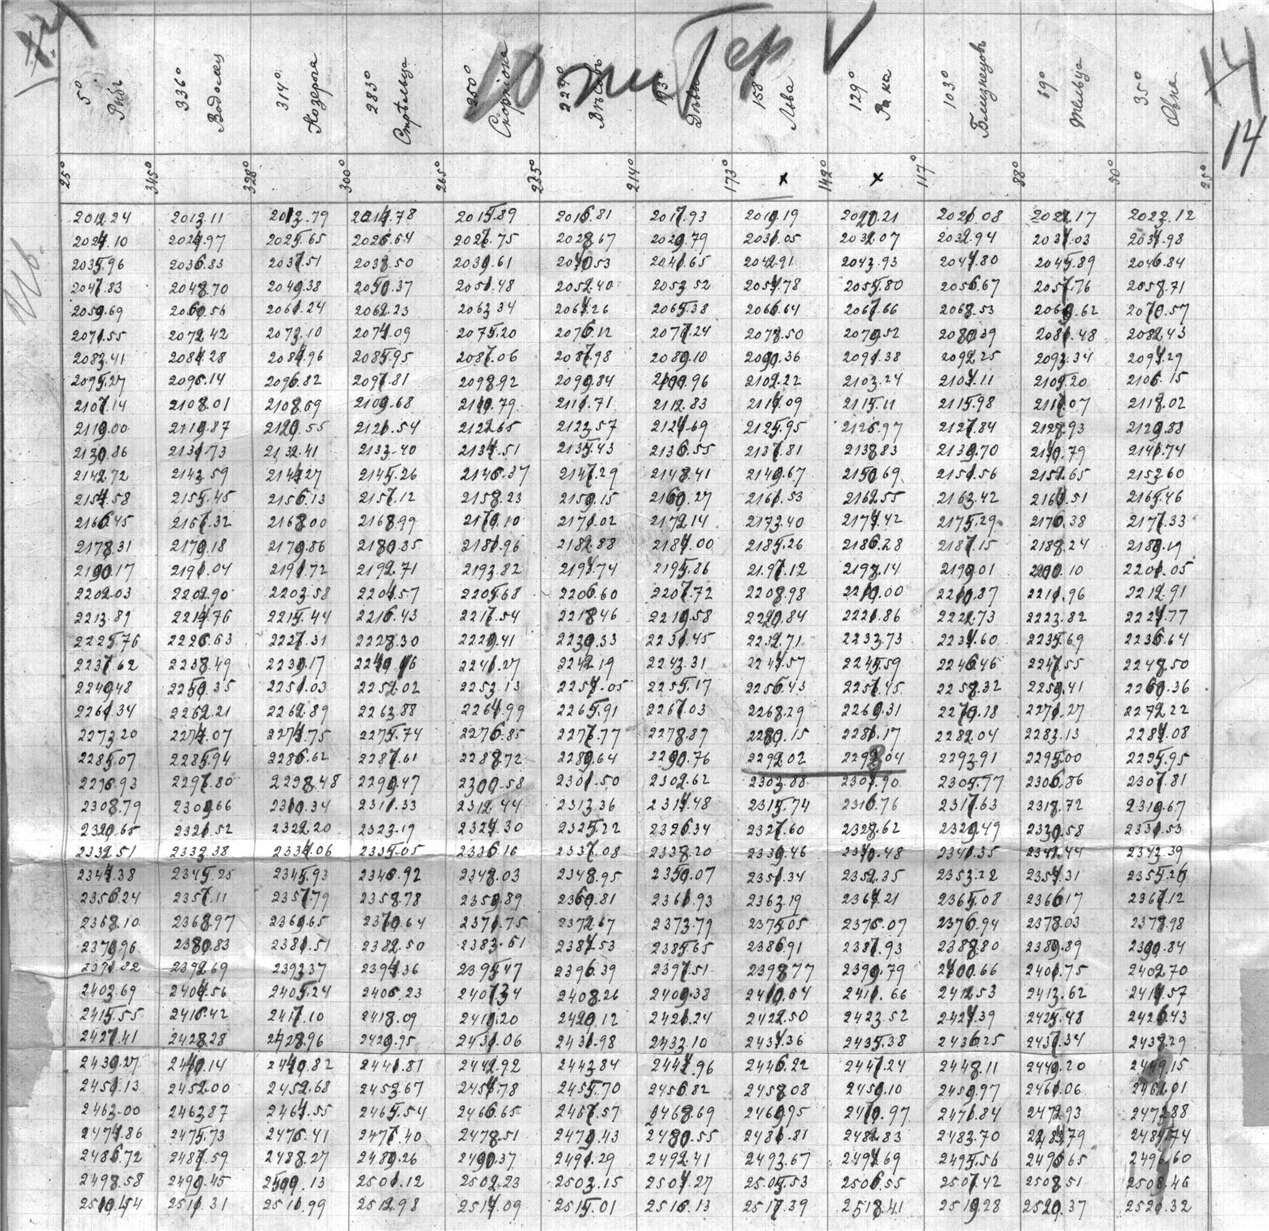 Юпитер V
14
5° Рыбъ 336° Водолея 314° Козерога 283° Стрѣльца 250° Скорпiона 222° Вѣсовъ 193° Дѣвы 158° Льва 129° Рака 103° Близнецовъ 69° Тельца 35° Овна
25° 345° 328° 300° 265° 235° 214° 173° 142° 117° 88° 50° 25°
x x
2012.24 2013.11 2013.79 2014.78 2015.89 2016.81 2017.93 2019.19 2020.21 2021.08 2022.17 2023.12
2024.10 2024.97 2025.65 2026.64 2027.75 2028.67 2029.79 2031.05 2032.07 2032.94 2034.03 2034.98
2035.96 2036.83 2037.51 2038.50 2039.61 2040.53 2041.65 2042.91 2043.93 2044.80 2045.89 2046.84
2047.83 2048.70 2049.38 2050.37 2051.48 2052.40 2053.52 2054.78 2055.80 2056.67 2057.76 2058.71
2059.69 2060.56 2061.24 2062.23 2063.34 2064.26 2065.38 2066.64 2067.66 2068.53 2069.62 2070.57
2071.55 2072.42 2073.10 2074.09 2075.20 2076.12 2077.24 2078.50 2079.52 2080.39 2081.48 2082.43
2083.41 2084.28 2084.96 2085.95 2087.06 2087.98 2089.10 2090.36 2091.38 2092.25 2093.34 2094.29
2095.27 2096.14 2096.82 2097.81 2098.92 2099.84 2100.96 2102.22 2103.24 2104.11 2105.20 2106.15
2107.14 2108.01 2108.69 2109.68 2110.79 2111.71 2112.83 2114.09 2115.11 2115.98 2117.07 2118.02
2119.00 2119.87 2120.55 2121.54 2122.65 2123.57 2124.69 2125.95 2126.97 2127.84 2128.93 2129.88
2130.86 2131.73 2132.41 2133.40 2134.51 2135.43 2136.55 2137.81 2138.83 2139.70 2140.79 2141.74
2142.72 2143.59 2144.27 2145.26 2146.37 2147.29 2148.41 2149.67 2150.69 2151.56 2152.65 2153.60
2154.58 2155.45 2156.13 2157.12 2158.23 2159.15 2160.27 2161.53 2162.55 2163.42 2164.51 2165.46
2166.45 2167.32 2168.00 2168.99 2170.10 2171.02 2172.14 2173.40 2174.42 2175.29 2176.38 2177.33
2178.31 2179.18 2179.86 2180.85 2181.96 2182.88 2184.00 2185.26 2186.28 2187.15 2188.24 2189.19
2190.17 2191.04 2191.72 2192.71 2193.82 2194.74 2195.86 2197.12 2198.14 2199.01 2200.10 2201.05
2202.03 2202.90 2203.58 2204.57 2205.68 2206.60 2207.72 2208.98 2210.00 2210.87 2211.96 2212.91
2213.89 2214.76 2215.44 2216.43 2217.54 2218.46 2219.58 2220.84 2221.86 2222.73 2223.82 2224.77
2225.76 2226.63 2227.31 2228.30 2229.41 2230.33 2231.45 2232.71 2233.73 2234.60 2235.69 2236.64
2237.62 2238.49 2239.17 2240.16 2241.27 2242.19 2243.31 2244.57 2245.59 2246.46 2247.55 2248.50
2249.48 2250.35 2251.03 2252.02 2253.13 2254.05 2255.17 2256.43 2257.45 2258.32 2259.41 2260.36
2261.34 2262.21 2262.89 2263.88 2264.99 2265.91 2267.03 2268.29 2269.31 2270.18 2271.27 2272.22
2273.20 2274.07 2274.75 2275.74 2276.85 2277.77 2278.87 2280.15 2281.17 2282.04 2283.13 2284.08
2285.07 2285.94 2286.62 2287.61 2288.72 2289.64 2290.76 2292.02 2293.04 2293.91 2295.00 2295.95
2296.93 2297.80 2298.48 2299.47 2300.58 2301.50 2302.62 2303.88 2304.90 2305.77 2306.86 2307.81
2308.79 2309.66 2310.34 2311.33 2312.44 2313.36 2314.48 2315.74 2316.76 2317.63 2318.72 2319.67
2320.65 2321.52 2322.20 2323.19 2324.30 2325.22 2326.34 2327.60 2328.62 2329.49 2330.58 2331.53
2332.51 2333.38 2334.06 2335.05 2336.16 2337.08 2338.20 2339.46 2340.48 2341.35 2342.44 2343.39
2344.38 2345.25 2345.93 2346.92 2348.03 2348.95 2350.07 2351.34 2352.35 2353.22 2354.31 2355.26
2356.24 2357.11 2357.79 2358.78 2359.89 2360.81 2361.93 2363.19 2364.21 2365.08 2366.17 2367.12
2368.10 2368.97 2369.65 2370.64 2371.75 2372.67 2373.79 2375.05 2376.07 2376.94 2378.03 2378.98
2379.96 2380.83 2381.51 2382.50 2383.61 2384.53 2385.65 2386.91 2387.93 2388.80 2389.89 2390.84
2391.82 2392.69 2393.37 2394.36 2395.47 2396.39 2397.51 2398.77 2399.79 2400.66 2401.75 2402.70
2403.69 2404.56 2405.24 2406.23 2407.34 2408.26 2409.38 2410.64 2411.66 2412.53 2413.62 2414.57
2415.55 2416.42 2417.10 2418.09 2419.20 2420.12 2421.24 2422.50 2423.52 2424.39 2425.48 2426.43
2427.41 2428.28 2428.96 2429.95 2431.06 2431.98 2433.10 2434.36 2435.38 2436.25 2437.34 2438.29
2439.27 2440.14 2440.82 2441.81 2442.92 2443.84 2444.96 2446.22 2447.24 2448.11 2449.20 2449.15
2451.13 2452.00 2452.68 2453.67 2454.78 2455.70 2456.82 2458.08 2459.10 2459.97 2461.06 2462.01
2463.00 2463.87 2464.55 2465.54 2466.65 2467.57 2468.69 2469.95 2470.97 2471.84 2472.93 2473.88
2474.86 2475.73 2476.41 2477.40 2478.51 2479.43 2480.55 2481.81 2482.83 2483.70 2484.79 2485.74
2486.72 2487.59 2488.27 2489.26 2490.37 2491.29 2492.41 2493.67 2494.69 2495.56 2496.65 2496.60
2498.58 2499.45 2500.13 2501.12 2502.23 2503.15 2504.27 2505.53 2506.55 2507.42 2508.51 2508.46
2510.44 2511.31 2511.99 2512.98 2514.09 2515.01 2516.13 2517.39 2518.41 2519.28 2520.37 2521.32